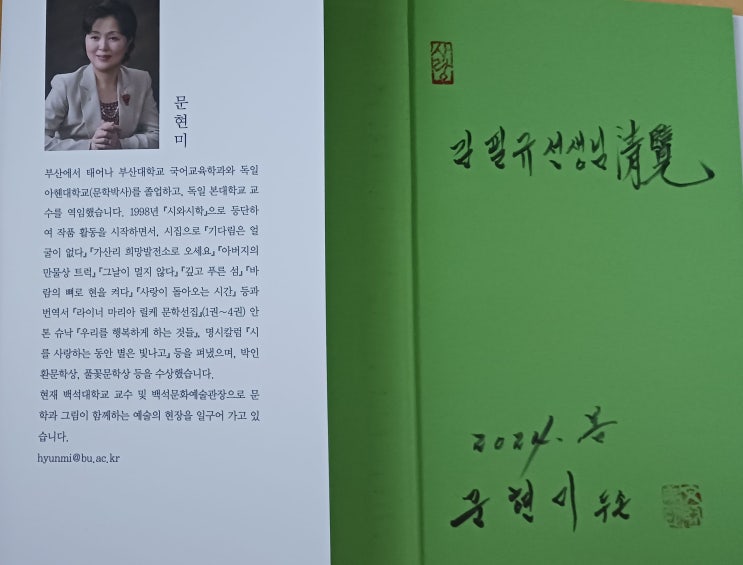 문현미
부산에서 태어나 부산대학교 국어교육학과와 독일
아헨대학교(문학박사)를 졸업하고, 독일 본대학교 교
수를 역임했습니다. 1998년 『시와시학』으로 등단하
여 작품 활동을 시작하면서, 시집으로 『기다림은 얼
굴이 없다』 『가산리 희망발전소로 오세요』 『아버지의
만물상 트럭』 『그날이 멀지 않다』 『깊고 푸른 섬』 『바
람의 뼈로 현을 켜다』 『사랑이 돌아오는 시간』 등과
번역서 『라이너 마리아 릴케 문학선집』(1권~4권) 안
톤 슈낙 『우리를 행복하게 하는 것들』, 명시칼럼 『시
를 사랑하는 동안 별은 빛나고』 등을 펴냈으며, 박인
환문학상, 풀꽃문학상 등을 수상했습니다.
현재 백석대학교 교수 및 백석문화예술관장으로 문
학과 그림이 함께하는 예술의 현장을 일구어 가고 있
습니다.
hyunmi@bu.ac.kr
사랑
김필규 선생님 清覽
2024. 봄
문현미